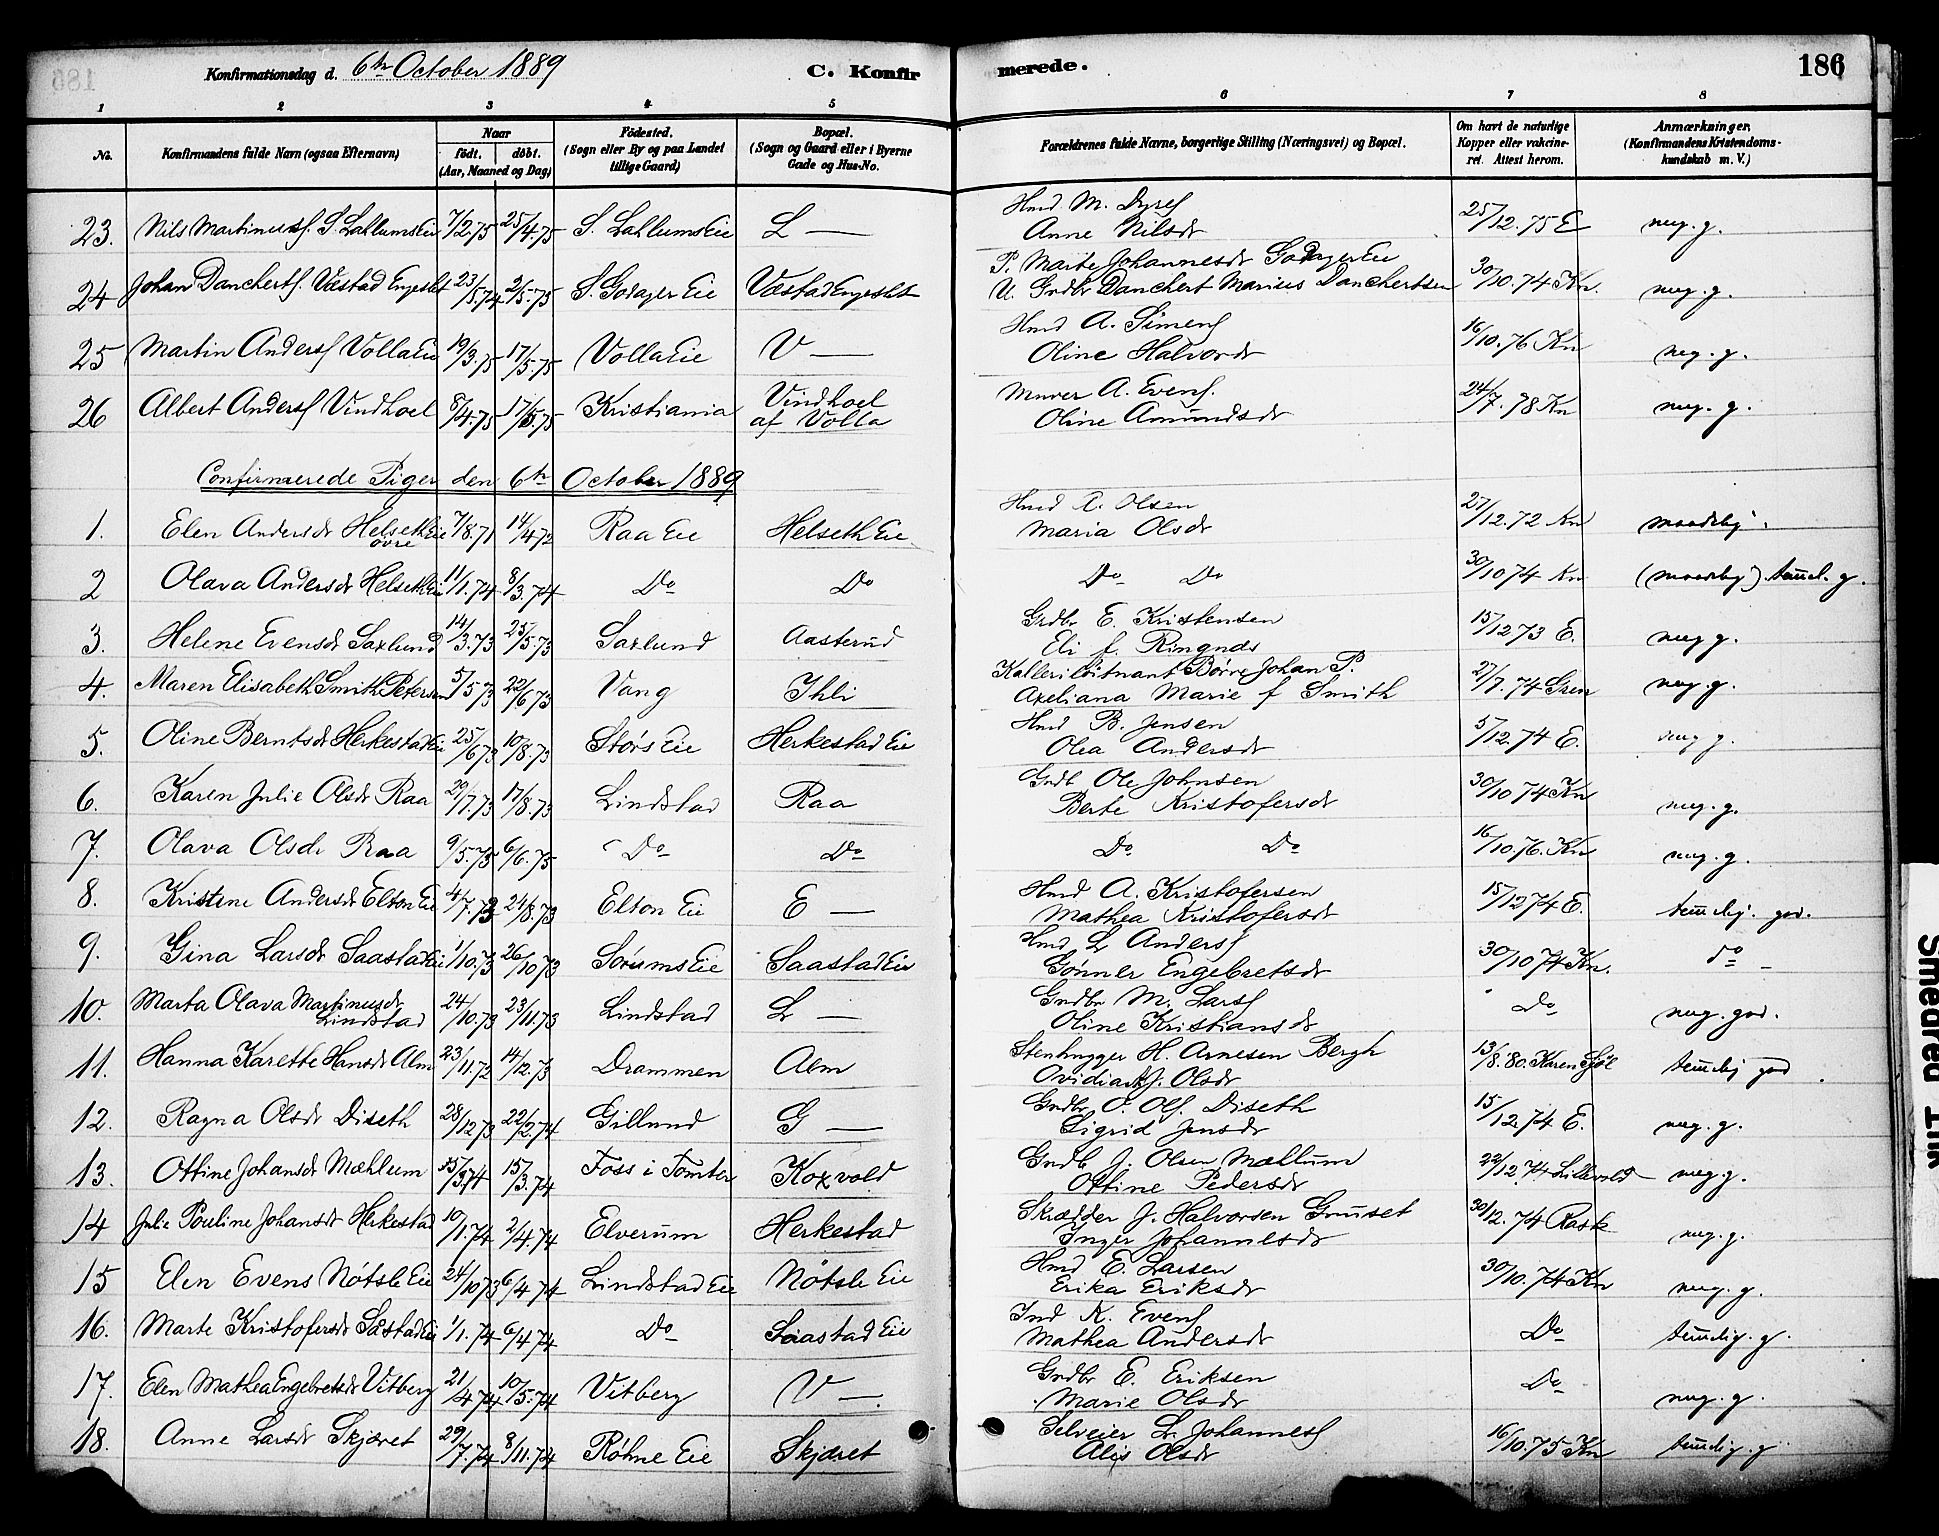 Konfirmationsdag d. 6te October 1889 C. Konfirmerede. 186
1 2 3 4 5 6 7 8
No. Konfirmandens fulde Navn (ogsaa Efternavn) Naar født. døbt. (Aar, Maaned og Dag) Fødested. (Sogn eller By og paa Landet tillige Gaard) Bopæl. (Sogn og Gaard eller i Byerne Gade og Hus-No. Forældrenes fulde Navne, borgerlige Stilling (Næringsvei) og Bopæl. Om havt de naturlige Kopper eller vaccineret. Attest herom. Anmærkninger. (Konfirmandens Kristendomskundskab m. V.)
23. Nils Martinuss. S. Lahlums Eie 7/2.75 25/4.75 S. Lahlums Eie L — Hmd. M. Dyres Anne Nilsdr 25/12.75 E meg. g.
24 Johan Dancherts. Væstad Engeslet 23/5.74 2/5.75 S. Godager Eie Væstad Engeslet P. Marte Johannesdr Godager Eie U. Grdbr Danchert Marius Danchertsen 30/10.74 Kn. meg. g.
25 Martin Anders Volla Eie 19/3.75 17/5.75 Volla Eie V — Hmd A. Simens Oline Halvordr 16/10.76 Kn meg. g.
26 Albert Anders Vindhoel 8/4.75 17/5.75 Kristiania Vindhoel af Volla Murer A. Evens. Oline Amundsdr 24/7.78 Kn meg. g.
Confirmerede Piger den 6te October 1889
1. Elen Andersdr Helseth Eie øvre 7/8.71 14/4.72 Raa Eie Helseth Eie Hmd A. Olsen Maria Olsdr 27/12.72 Kn maadelig.
2 Olava Andersdr Helseth Eie 11/1.74 8/3.74 Do Do Do Do 30/10 74 Kn (maadelig) temel. g.
3. Helene Evensdr Saxlund 14/3.73 25/5.73 Saxlund Aasterud Grdbr E. Kristensen Eli f. Ringnds 15/12 73 E. meg g.
4. Maren Elisabeth Smith Petersen 5/5 73 22/6 73 Vang Ihli Kalleriløitnant Børre Johan P. Axeliana Marie f Smith 27/7.74 Gren meg. g.
5. Oline Berntsdr Herkestad Eie 25/6 73 10/8.73 Størs Eie Herkestad Eie Hmd B. Jensen Olea Andersdr 5/12.74 E. meg g.
6. Karen Julie Olsdr Raa 29/7.73 17/8.73 Lindstad Raa Grdb Ole Johnsen Berte Kristofersdr 30/10 74 Kn meg. g.
7. Olava Olsdr Raa 9/5.75 6/6.75 Do Do Do Do 16/10.76. Kn meg. g.
8. Kristine Andersdr Elton Eie 4/7.73 24/8.73 Elton Eie E — Hmd A. Kristofersen Mathea Kristofersdr 15/12 74 E. temelig. god.
9. Gina Larsdr Saastad Eie 1/10.73 26/10 73 Sørums Eie Saastad Eie Hmd L Anders Gønner Engebretsdr 30/10 74 Kn. do —
10. Marta Olava Martinusdr Lindstad 24/10.73 23/11.73 Lindstad L — Grdbr M. Lars Oline Kristiansdr Do meg. god.
11. Hanna Karette Hansdr Alm 23/11.72 14/12.73 Drammen Alm Stenhugger H. Arnesen Bergh Olsdr 13/8.80. Karen temelig god.
12. Ragna Olsdr Diseth 28/12 73 22/2.74 Gillund G — Grdbr O. Ols. Diseth Sigrid Jensdr 15/12.74 E. meg. g.
13. Ottine Johansdr Mæhlum 3.74 15/3.74 Foss i Tomter Koxvold Grdb J. Olsen Mæhlum Ottine Pedersdr 22/12.74 Lillevold meg g.
14 Julie Pouline Johansdr Herkestad 10/1.74 2/4.74 Elverum Herkestad Skrædder J. Halvorsen Gruset Inger Johannesdr 30/12.74 Rask meg. g.
15 Elen Evens Nøtsle Eie 24/10 73 6/4.74 Lindstad Eie Nøtsle Eie Hmd E. Larsen Erika Eriksdr 30/10.74 Kn meg. g.
16. Marte Kristofersdr Sastad Eie 1/1.74 6/4.74 Do Saastad Eie Ind K. Evens Mathea Andersdr Do temelig. g.
17. Elen Mathea Engebretsdr Vitberg 21/4.74 10/5.74 Vitberg V —. Grdbr E. Eriksen Marie Olsdr Do meg. g.
18. Anne Larsdr Skjæret 29/7.74 8/11.74 Røhne Eie Skjæret Selveier L. Johannes Alis Olsdr 16/10.75 Kn temelig. g.